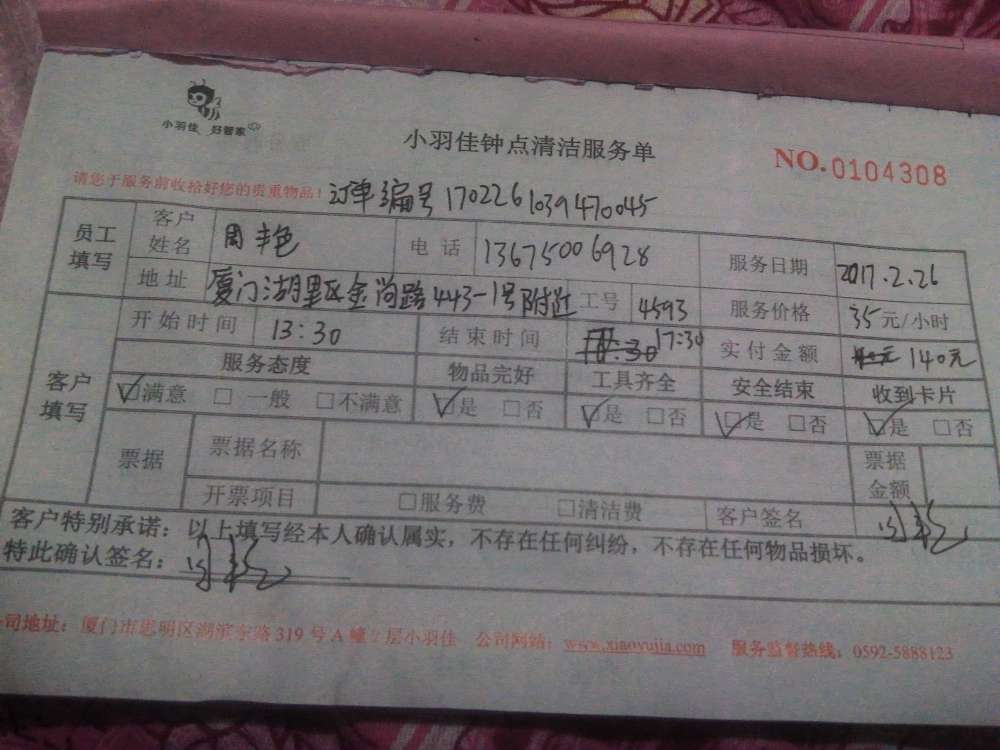 小羽佳 好管家
小羽佳钟点清洁服务单
NO.0104308
请您于服务前收拾好您的贵重物品！ 订单编号 1702261039470045
员工填写 客户姓名 周丰色 电话 13675006928 服务日期 2017.2.26
地址 厦门湖里区金尚路443-1号附近 工号 4593 服务价格 35元/小时
客户填写 开始时间 13:30 结束时间 17:30 实付金额 140元
服务态度 物品完好 工具齐全 安全结束 收到卡片
☑满意 □一般 □不满意 ☑是 □否 ☑是 □否 ☑是 □否 ☑是 □否
票据 票据名称 票据金额
开票项目 □服务费 □清洁费 客户签名
客户特别承诺：以上填写经本人确认属实，不存在任何纠纷，不存在任何物品损坏。
特此确认签名：
司地址：厦门市思明区湖滨东路319号A幢2层小羽佳 公司网站：www.xiaoyujia.com 服务监督热线：0592-5888123